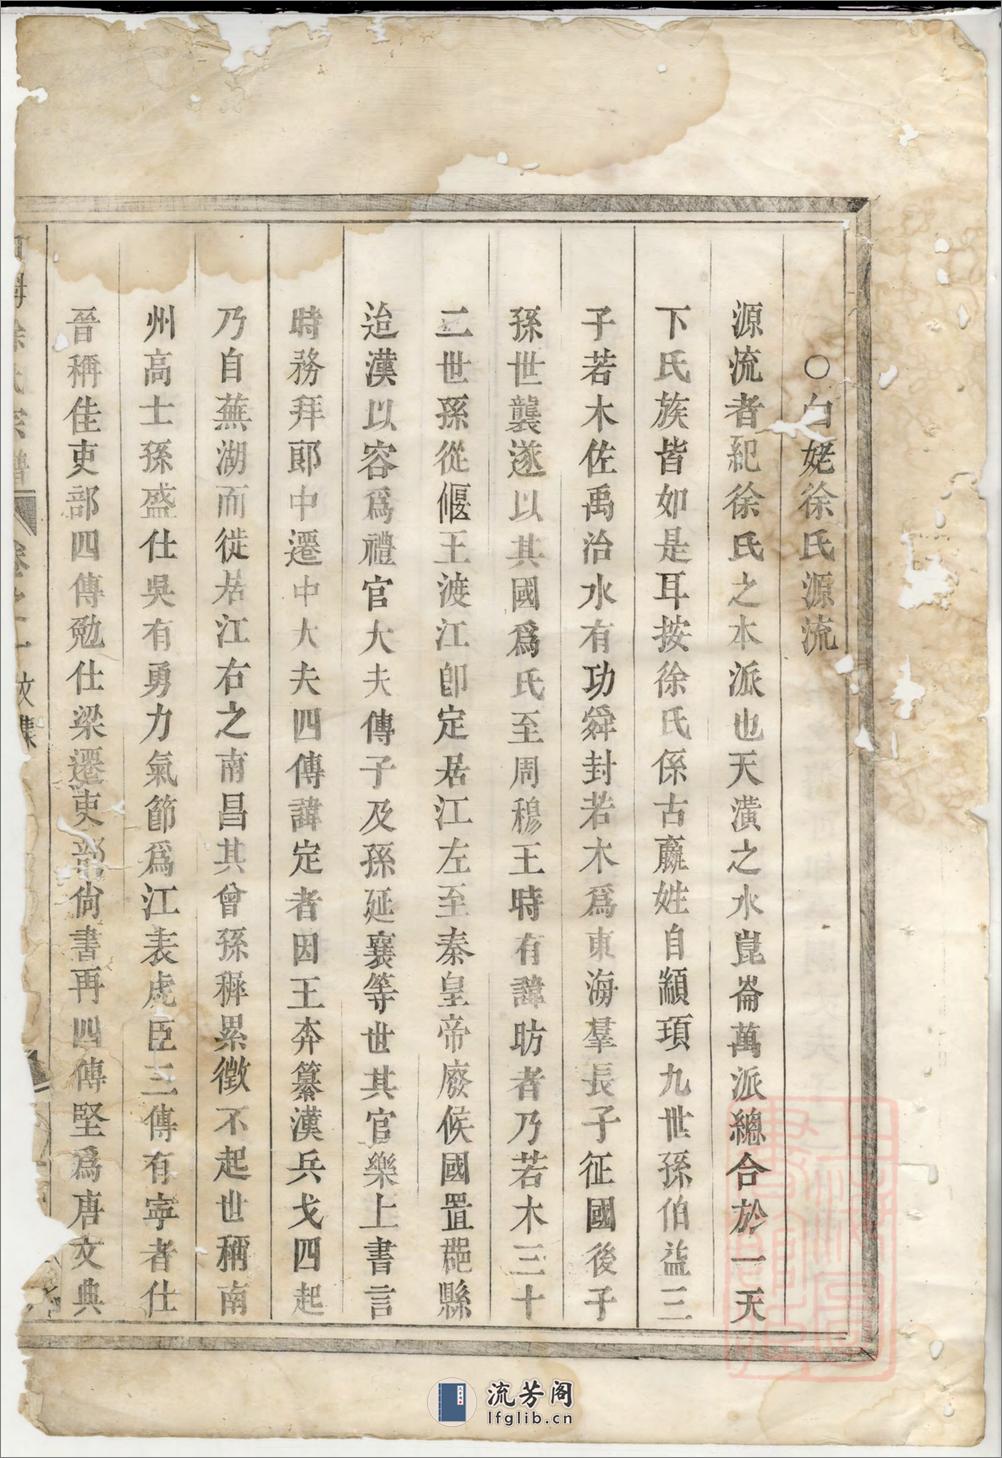 ○白姥徐氏源流
源流者紀徐氏之本派也天潢之水崑崙萬派總合於一天
下氏族皆如是耳按徐氏係古嬴姓自顓頊九世孫伯益三
子若木佐禹治水有功舜封若木爲東海羣長子征國後子
孫世襲遂以其國爲氏至周穆王時有諱昉者乃若木三十
二世孫從偃王渡江卽定居江左至秦皇帝廢候國置郡縣
迨漢以容爲禮官大夫傳子及孫延襄等世其官樂上書言
時務拜郎中遷中大夫四傳諱定者因王奔篡漢兵戈四起
乃自蕪湖而徙居江右之南昌其曾孫穉累徵不起世稱南
州高士孫盛仕吳有勇力氣節爲江表虎臣三傳有寧者仕
晉稱佳吏部四傳勉仕梁遷吏部尙書再四傳堅爲唐文典
海徐氏宗譜 卷之一
流芳阁
lfglib.cn